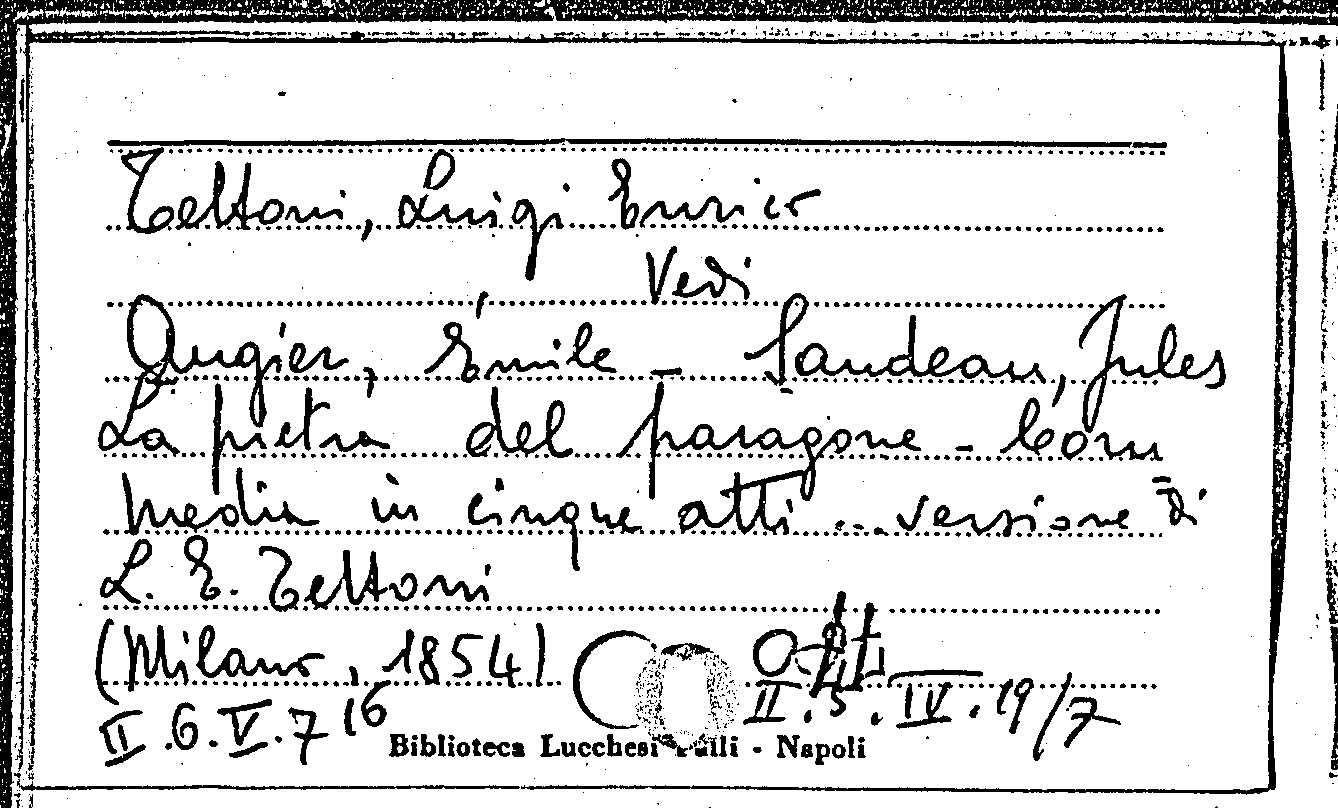 Tettoni, Luigi Enrico
Vedi
Augier, Émile - Sandeau, Jules
La pietra del paragone - Com
media in cinque atti ... versione di
L. E. Tettoni
(Milano, 1854)
II.6.V.7 16
II.5.IV.19/7
Biblioteca Lucchesi Palli - Napoli